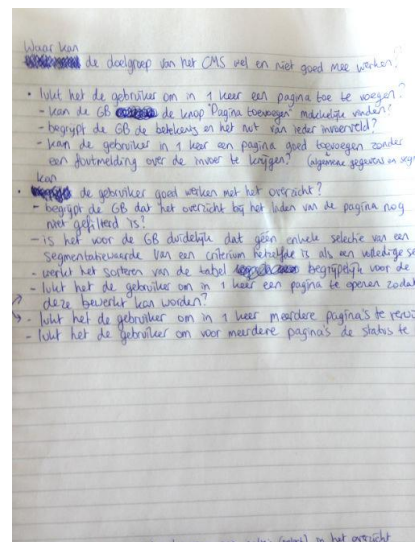 Waar kan
de doelgroep van het CMS wel en niet goed mee werken?
• lukt het de gebruiker om in 1 keer een pagina toe te voegen?
- kan de GB de knop "Pagina toevoegen" makkelijk vinden?
- begrijpt de GB de betekenis en het nut van ieder invoerveld?
- kan de gebruiker in 1 keer een pagina goed toevoegen zonder
een foutmelding over de invoer te krijgen? (algemene gegevens en seg
kan
• de gebruiker goed werken met het overzicht?
- begrijpt de GB dat het overzicht bij het laden van de pagina nog
niet gefilterd is?
- is het voor de GB duidelijk dat geen enkele selectie van een
segmentatiewaarde van een criterium hetzelfde is als een volledige se
- werkt het sorteren van de tabel begrijpelijk voor de
- lukt het de gebruiker om in 1 keer een pagina te openen zodat
deze bewerkt kan worden?
- lukt het de gebruiker om in 1 keer meerdere pagina's te verwij
- lukt het de gebruiker om voor meerdere pagina's de status te
in het overzicht